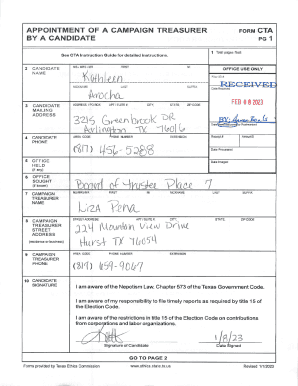 APPOINTMENT OF A CAMPAIGN TREASURER BY A CANDIDATE
FORM CTA
PG 1
See CTA Instruction Guide for detailed instructions.
1 Total pages filed:
2 CANDIDATE NAME
MS / MRS / MR FIRST MI
Kathleen
NICKNAME LAST SUFFIX
Arocha
OFFICE USE ONLY
RECEIVED
FEB 08 2023
BY:
3 CANDIDATE MAILING ADDRESS
ADDRESS / PO BOX; APT / SUITE #; CITY; STATE; ZIP CODE
3215 Greenbrook DR
Arlington TX 76016
4 CANDIDATE PHONE
AREA CODE PHONE NUMBER EXTENSION
(817) 456-5288
Receipt # Amount
Date Processed
Date Imaged
5 OFFICE HELD (if any)
6 OFFICE SOUGHT (if known)
Board of Trustee Place 7
7 CAMPAIGN TREASURER NAME
MS/MRS/MR FIRST MI NICKNAME LAST SUFFIX
Liza Pena
8 CAMPAIGN TREASURER STREET ADDRESS
(residence or business)
STREET ADDRESS; APT / SUITE #; CITY; STATE; ZIP CODE
224 Mountain View Drive
Hurst TX 76054
9 CAMPAIGN TREASURER PHONE
AREA CODE PHONE NUMBER EXTENSION
(817) 659-9067
10 CANDIDATE SIGNATURE
I am aware of the Nepotism Law, Chapter 573 of the Texas Government Code.
I am aware of my responsibility to file timely reports as required by title 15 of the Election Code.
I am aware of the restrictions in title 15 of the Election Code on contributions from corporations and labor organizations.
1/8/23
Signature of Candidate Date Signed
GO TO PAGE 2
Forms provided by Texas Ethics Commission www.ethics.state.tx.us Revised 1/1/2023